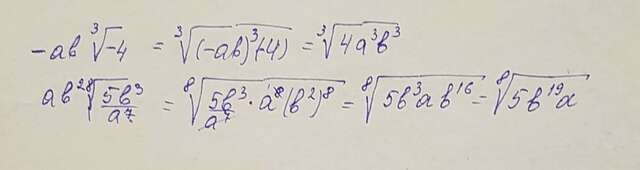 -ab ∛(-4) = ∛((-ab)³(-4)) = ∛(4a³b³)
ab² ⁸√(5b³/a⁷) = ⁸√(5b³/a⁷ · a⁸(b²)⁸) = ⁸√(5b³ab¹⁶) = ⁸√(5b¹⁹a)